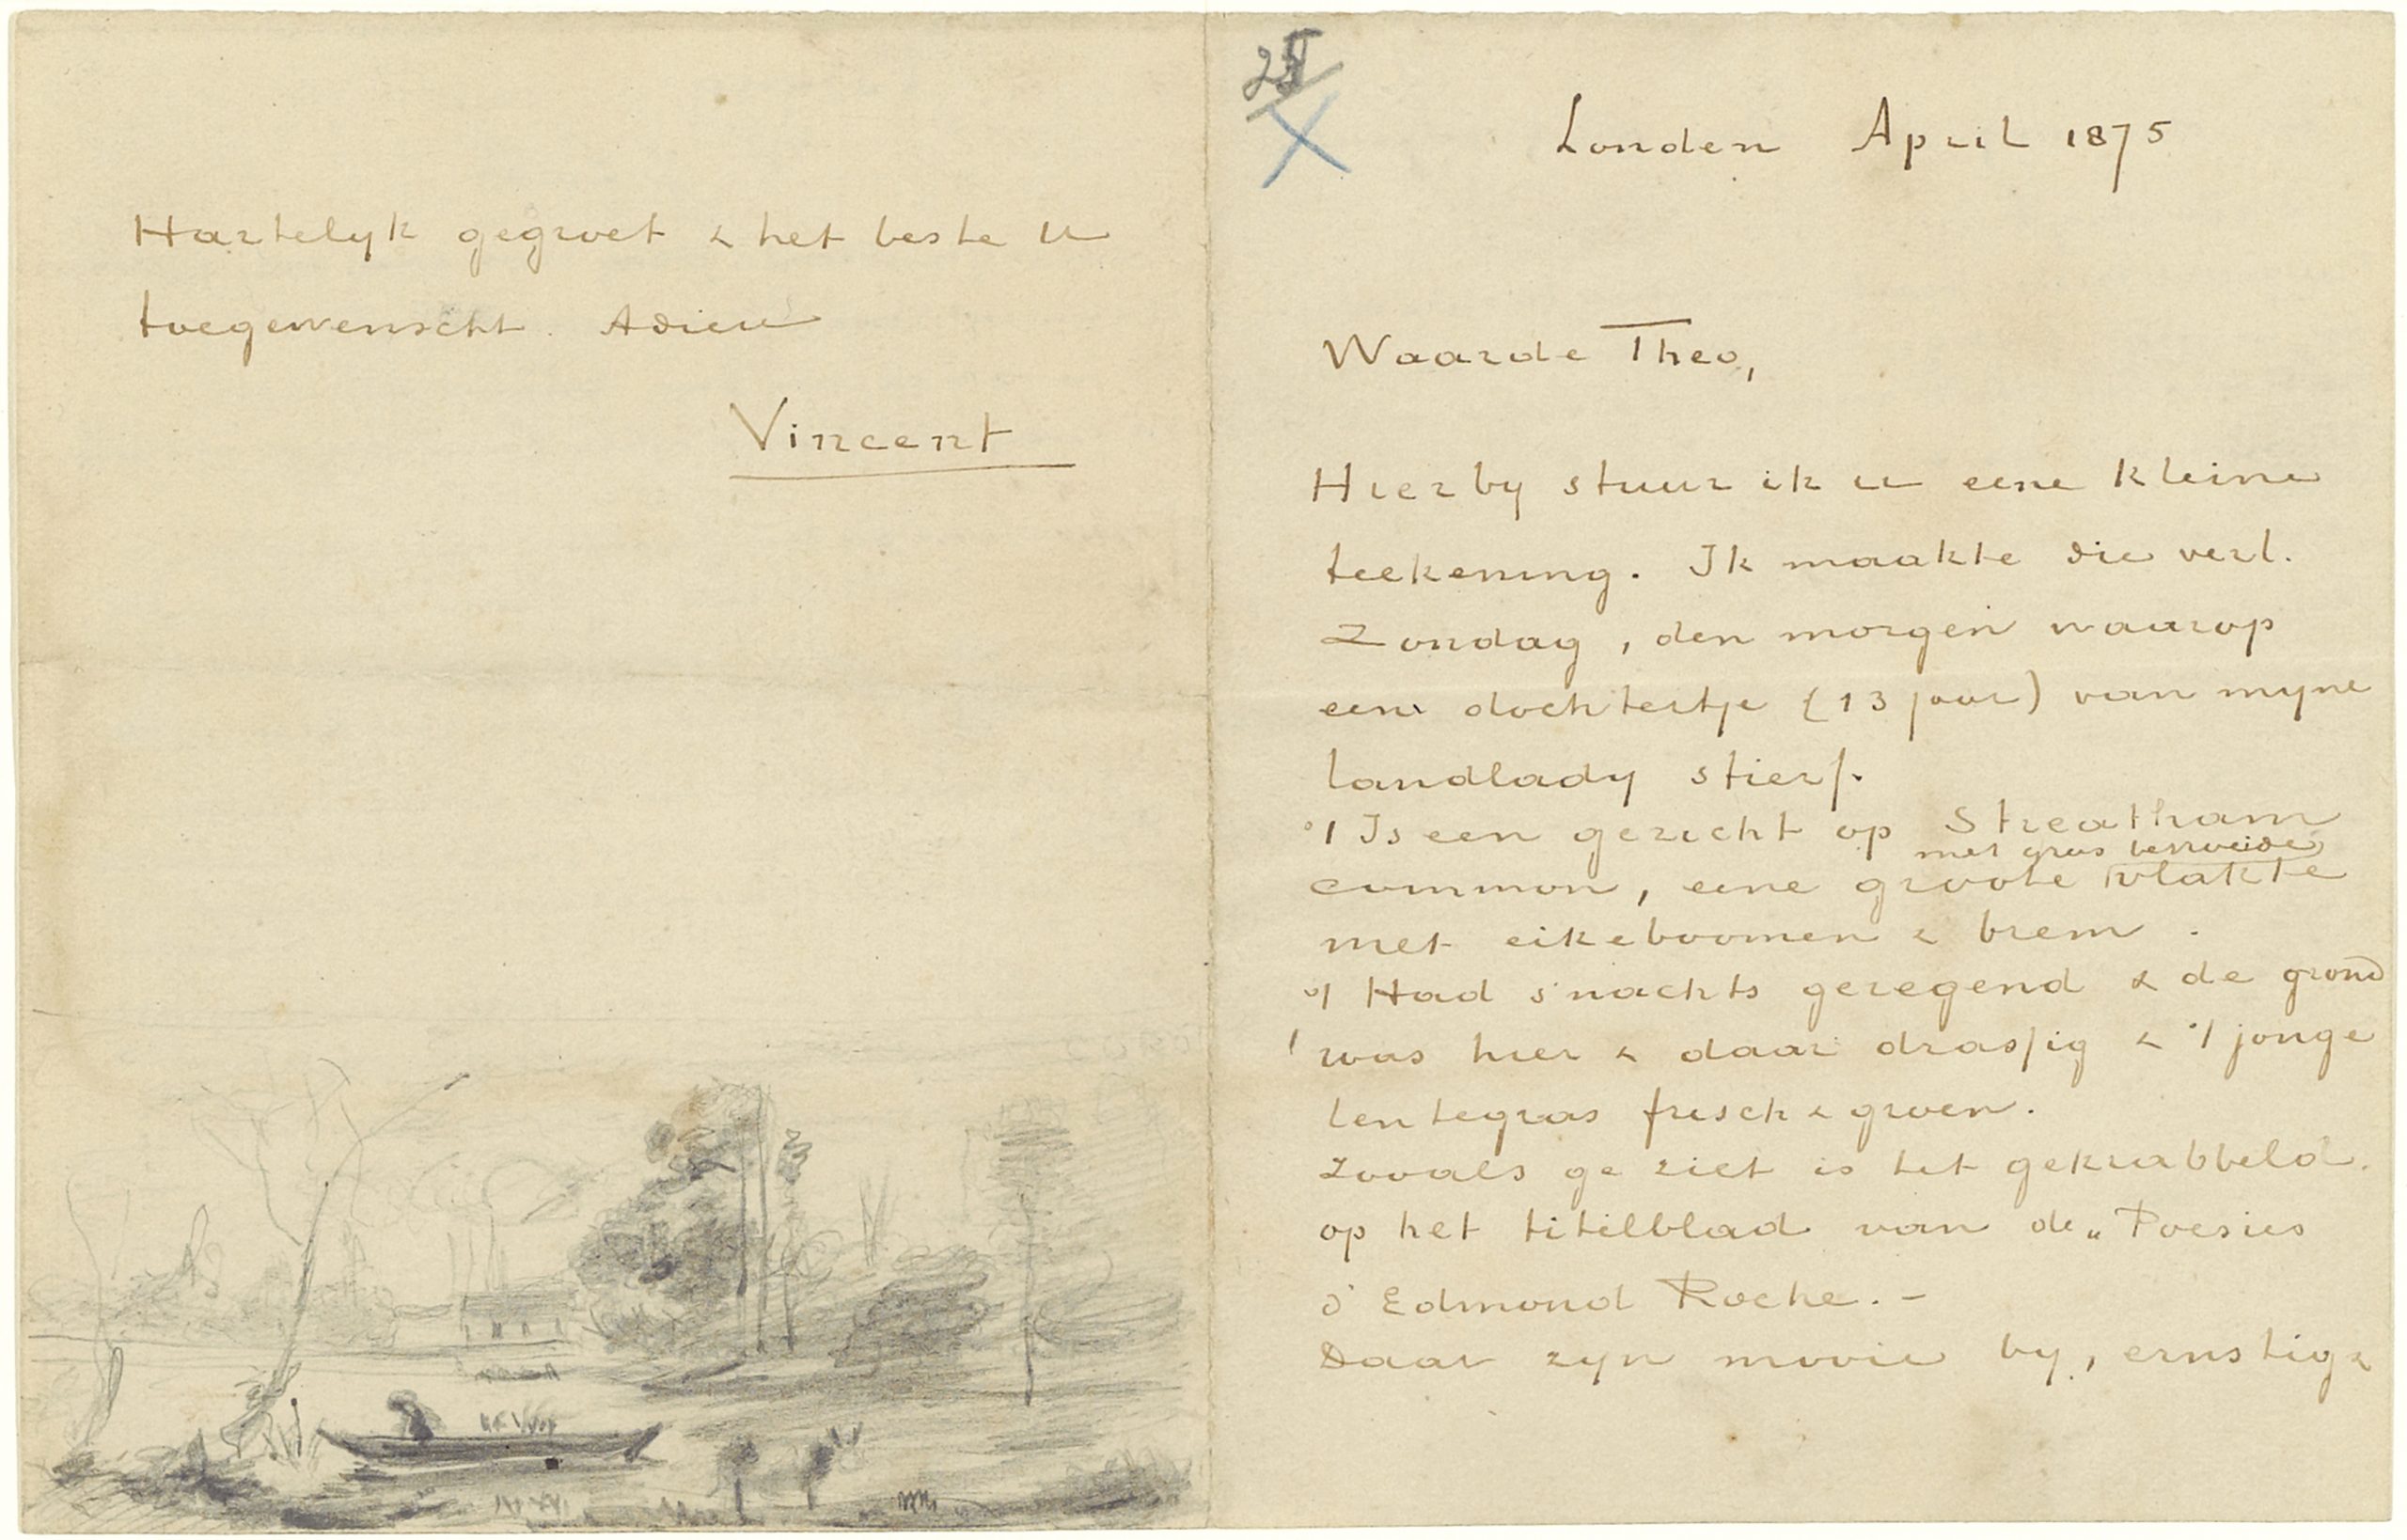 Hartelyk gegroet & het beste U
toegewenscht. Adieu
Vincent
25
X
Londen April 1875
Waarde Theo,
Hierby stuur ik u eene kleine
teekening. Ik maakte die verl.
Zondag, den morgen waarop
een dochtertje (13 jaar) van myne
landlady stierf.
't Is een gezicht op Streatham
met gras begroeide
common, eene groote vlakte
met eikeboomen & brem.
't Had s'nachts geregend & de grond
was hier & daar drassig & 't jonge
lentegras frisch & groen.
Zooals ge ziet is het gekrabbeld.
op het titelblad van de „Poesies
d'Edmond Roche. –
Daar zyn mooie by, ernstig &